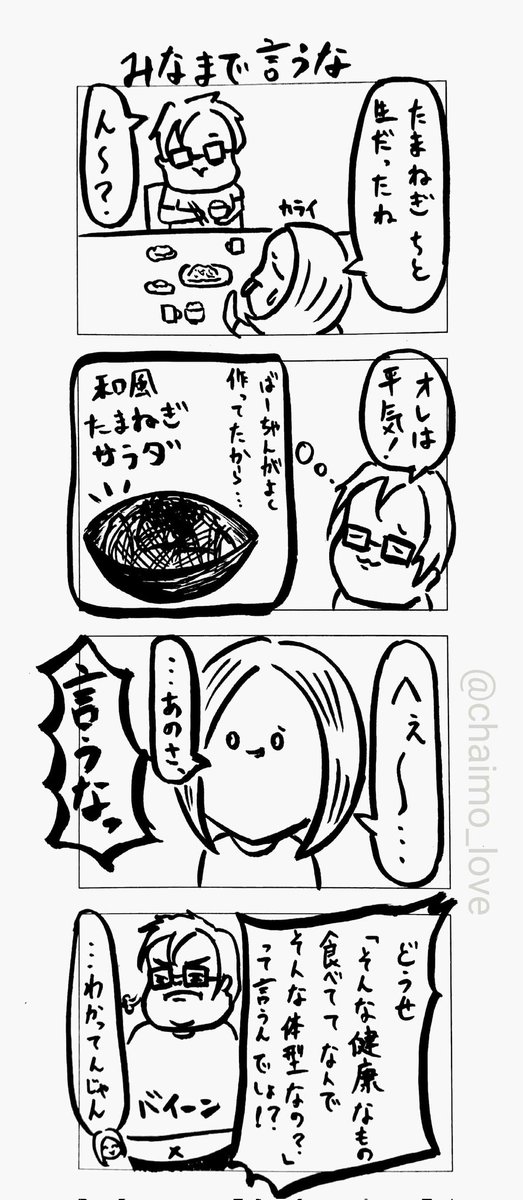 みなまで言うな
たまねぎ ちと
生だったね
カライ
ん〜？
オレは
平気！
ばーちゃんがよく
作ってたから…
和風
たまねぎ
サラダ
へぇ〜…
…あのさ、
言うなっ
どうせ
「そんな健康なもの
食べてて なんで
そんな体型なの？」
って言うんでしょ！？
バイーン
…わかってんじゃん
@chaimo_love